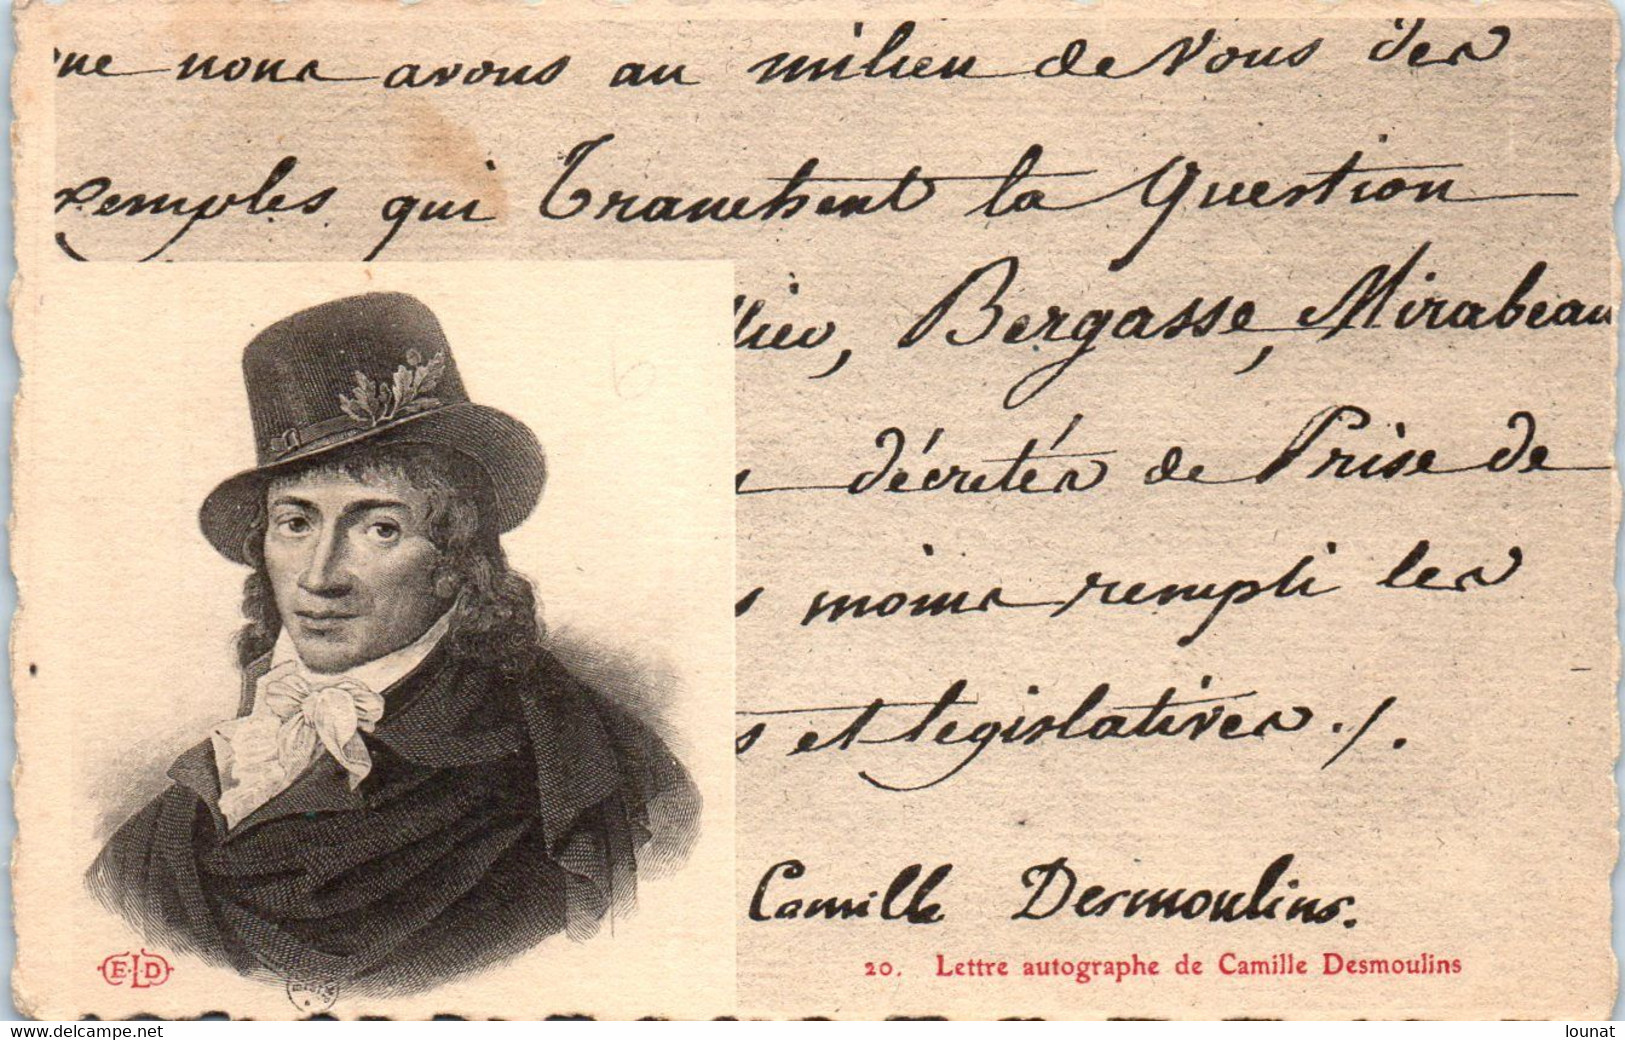 ne nous avons au milieu de Vous des
xemples qui Tranchent la Question
llieu, Bergasse, Mirabeau
s décrétés de Prise de
s moins rempli les
s et législatives ./.
Camille Desmoulins.
E.L.D
20. Lettre autographe de Camille Desmoulins
www.delcampe.net
lounat